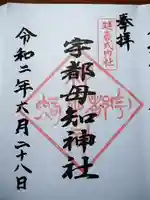 奉拝
延喜式内社
宇都母知神社
令和二年六月二十八日